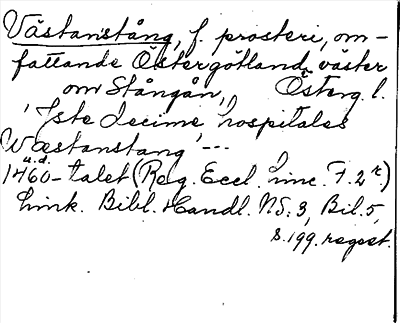 Västanstång, f. prosteri, om-
fattande Östergötland väster
om Stångån, Österg. l.
'Iste decime hospitales
Wæstanstang' ---
u.d.
1460-talet (Reg. Eccl. Linc. F. 2r)
Link. Bibl. Handl. N.S. 3, Bil. 5,
s. 199. regest.